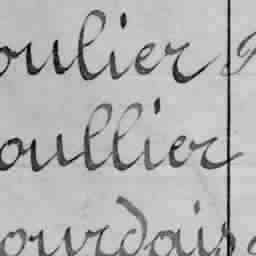 oulier
oullier
ourdais